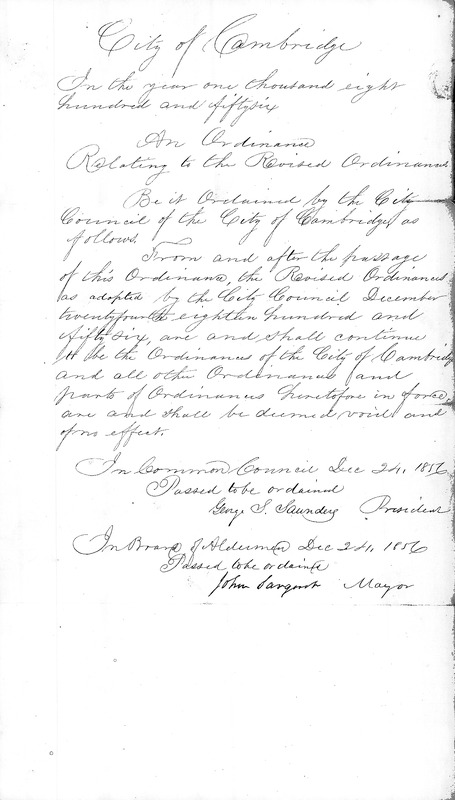 City of Cambridge
In the year one thousand eight
hundred and fiftysix
An Ordinance
Relating to the Revised Ordinances
Be it Ordained by the City
Council of the City of Cambridge, as
follows.
From and after the passage
of this Ordinance, the Revised Ordinances
as adopted by the City Council December
twentyfourth eighteen hundred and
fifty six, are and shall continue
to be the Ordinances of the City of Cambridge
and all other Ordinances and
parts of Ordinances heretofore in force,
are and shall be deemed void and
of no effect.
In Common Council Dec 24, 1856
Passed to be ordained
George S. Saunders President
In Board of Aldermen Dec 24, 1856
Passed to be ordained
John Sargent Mayor